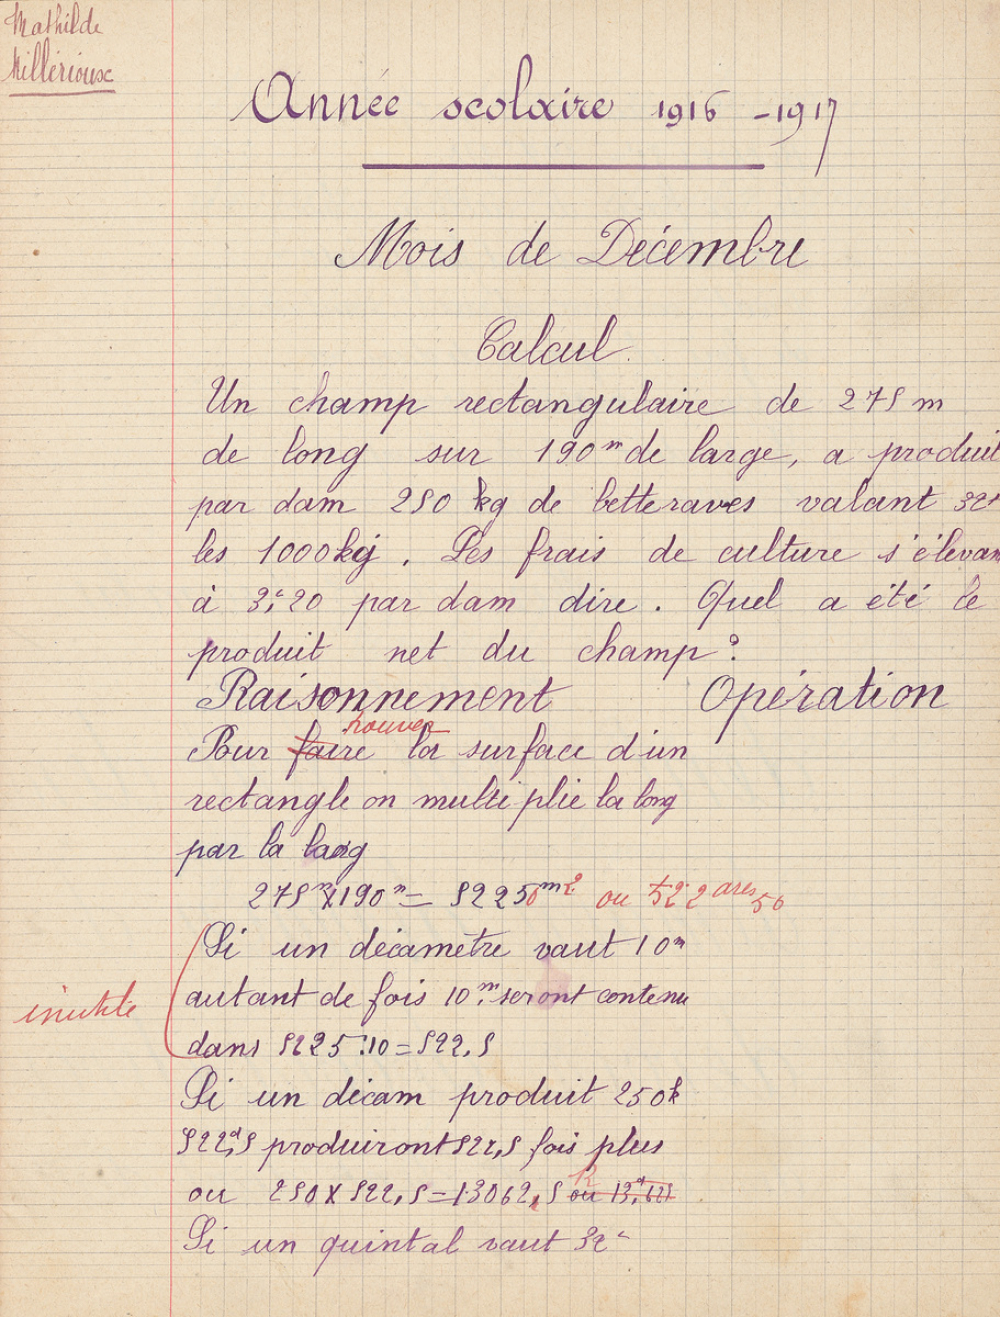 Mathilde
Millérioux
Année scolaire 1916 - 1917
Mois de Décembre
Calcul.
Un champ rectangulaire de 275 m
de long sur 190 m de large, a produit
par dam 250 kg de betteraves valant 32f
les 1000 kg. Les frais de culture s'élevan
à 3f,20 par dam dire. Quel a été le
produit net du champ?
Raisonnement Opération
trouver
Pour faire la surface d'un
rectangle on multi plie la long
par la larg
275m X 190m = 52250m2 ou 522 ares 50
Si un décamètre vaut 10m
autant de fois 10m seront contenu
inutile
dans 5225 : 10 = 522,5
Si un décam produit 250k
522d,5 produiront 522,5 fois plus
ou 250 X 522,5 = 13062,5 ou
Si un quintal vaut 32f